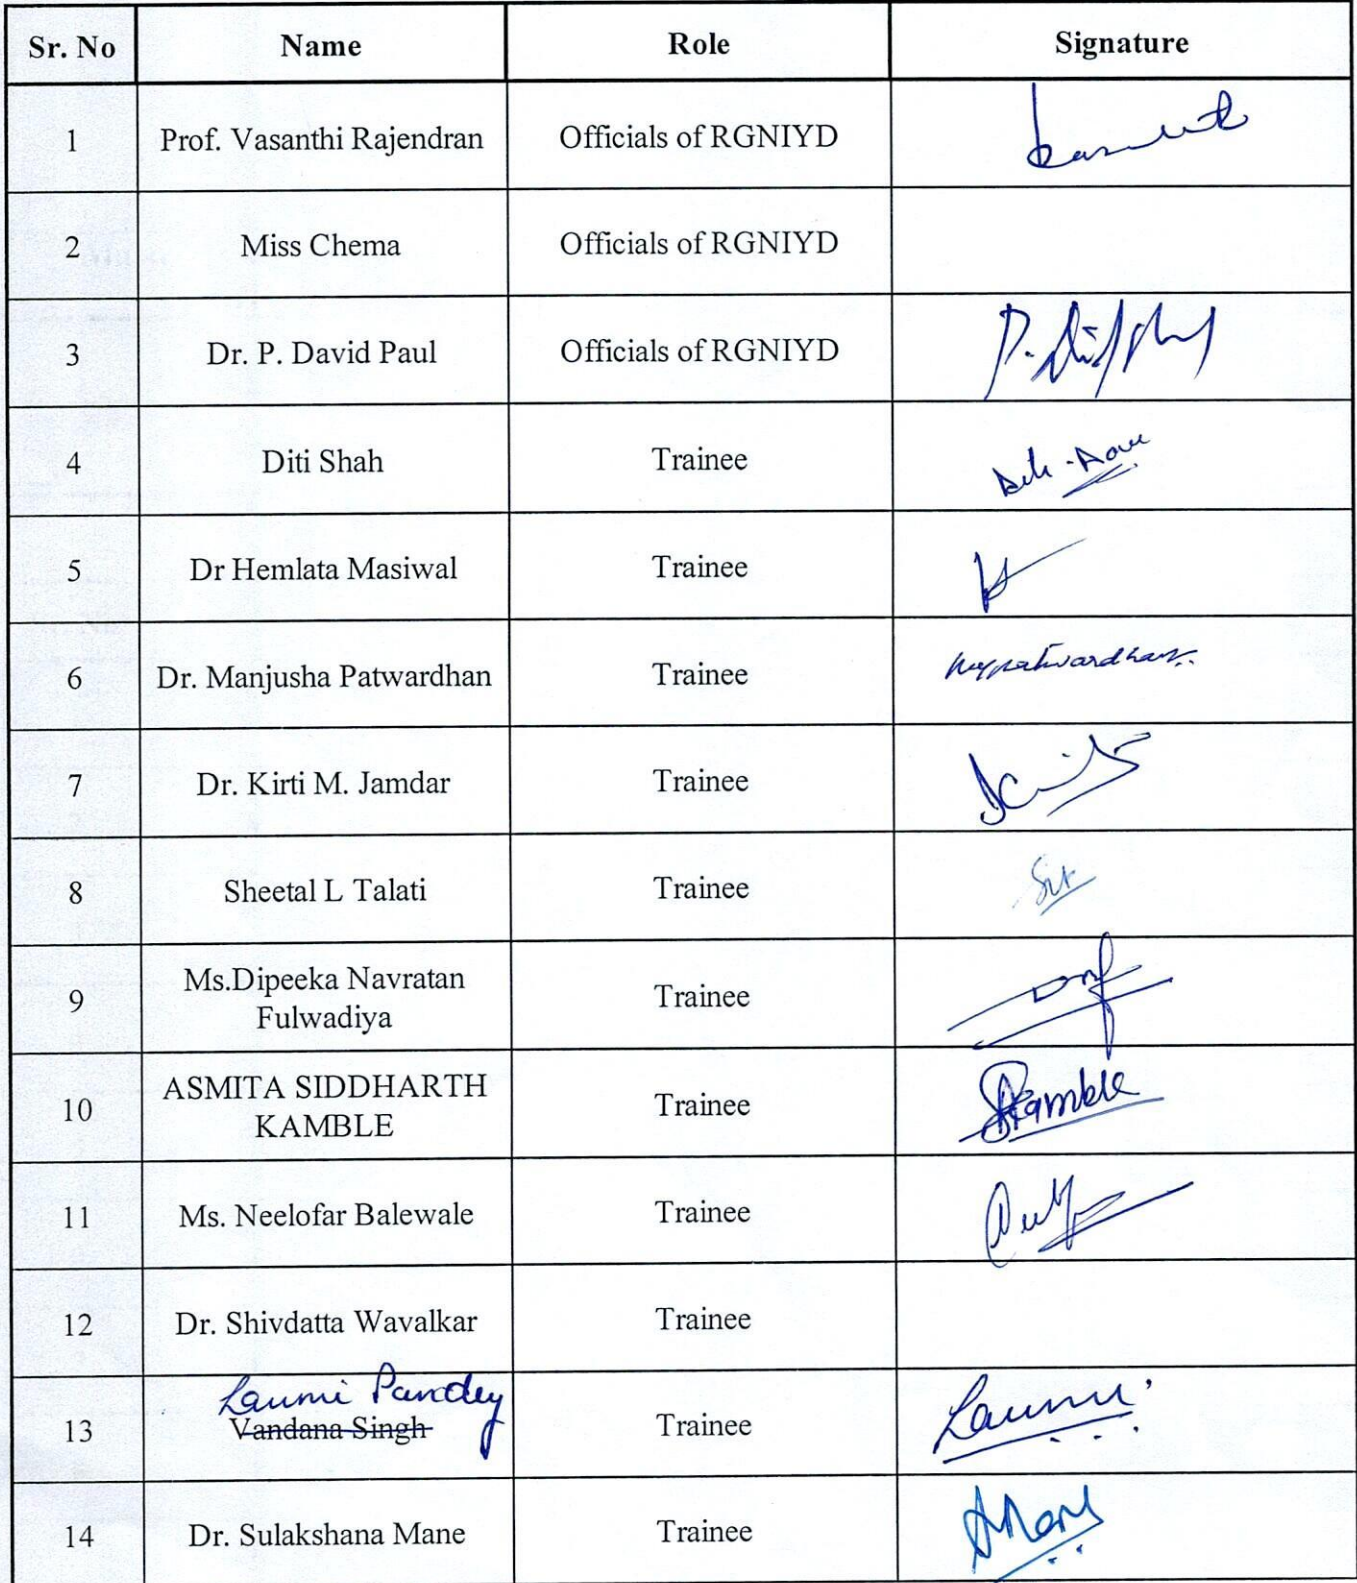 Sr. No Name Role Signature
1 Prof. Vasanthi Rajendran Officials of RGNIYD
2 Miss Chema Officials of RGNIYD
3 Dr. P. David Paul Officials of RGNIYD
4 Diti Shah Trainee
5 Dr Hemlata Masiwal Trainee
6 Dr. Manjusha Patwardhan Trainee
7 Dr. Kirti M. Jamdar Trainee
8 Sheetal L Talati Trainee
Ms.Dipeeka Navratan
9 Trainee
Fulwadiya
ASMITA SIDDHARTH
10 Trainee Kamble
KAMBLE
11 Ms. Neelofar Balewale Trainee
12 Dr. Shivdatta Wavalkar Trainee
Pandey
13 Vandana Singh Trainee
14 Dr. Sulakshana Mane Trainee